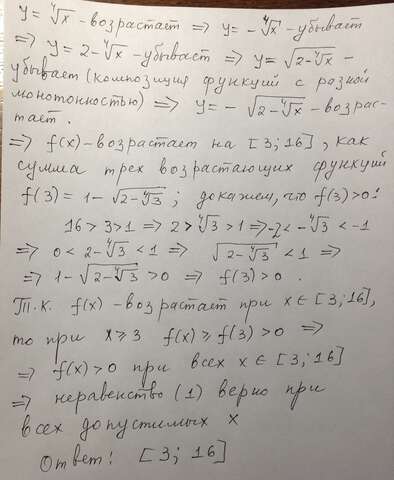 y = ∜x - возрастает ⇒ y = -∜x - убывает
⇒ y = 2-∜x - убывает ⇒ y = √(2-∜x) -
убывает (композиция функций с разной
монотонностью) ⇒ y = - √(2-∜x) - возрас-
тает.
⇒ f(x) - возрастает на [3; 16], как
сумма трех возрастающих функций
f(3) = 1 - √(2-∜3); докажем, что f(3)>0!
16 > 3 > 1 ⇒ 2 > ∜3 > 1 ⇒ -2 < -∜3 < -1
⇒ 0 < 2-∜3 < 1 ⇒ √(2-∜3) < 1 ⇒
⇒ 1 - √(2-∜3) > 0 ⇒ f(3) > 0 .
Т.к. f(x) - возрастает при x ∈ [3; 16],
то при x ⩾ 3 f(x) ⩾ f(3) > 0 ⇒
⇒ f(x) > 0 при всех x ∈ [3; 16]
⇒ неравенство (1) верно при
всех допустимых x
Ответ: [3; 16]